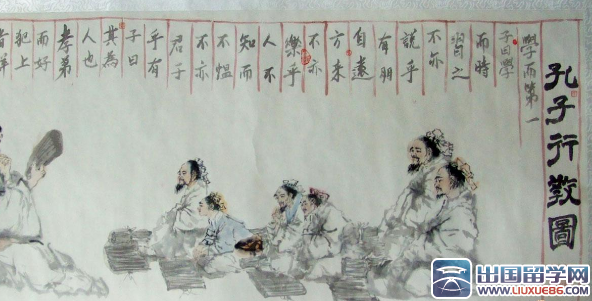 孔子行教圖
學而第一
子曰學
而時
習之
不亦
說乎
有朋
自遠
方来
不亦
樂乎
人不
知而
不愠
不亦
君子
乎有
子曰
其為
人也
孝弟
而好
犯上
者鮮
出国留学网
www.LIUXUE86.COM